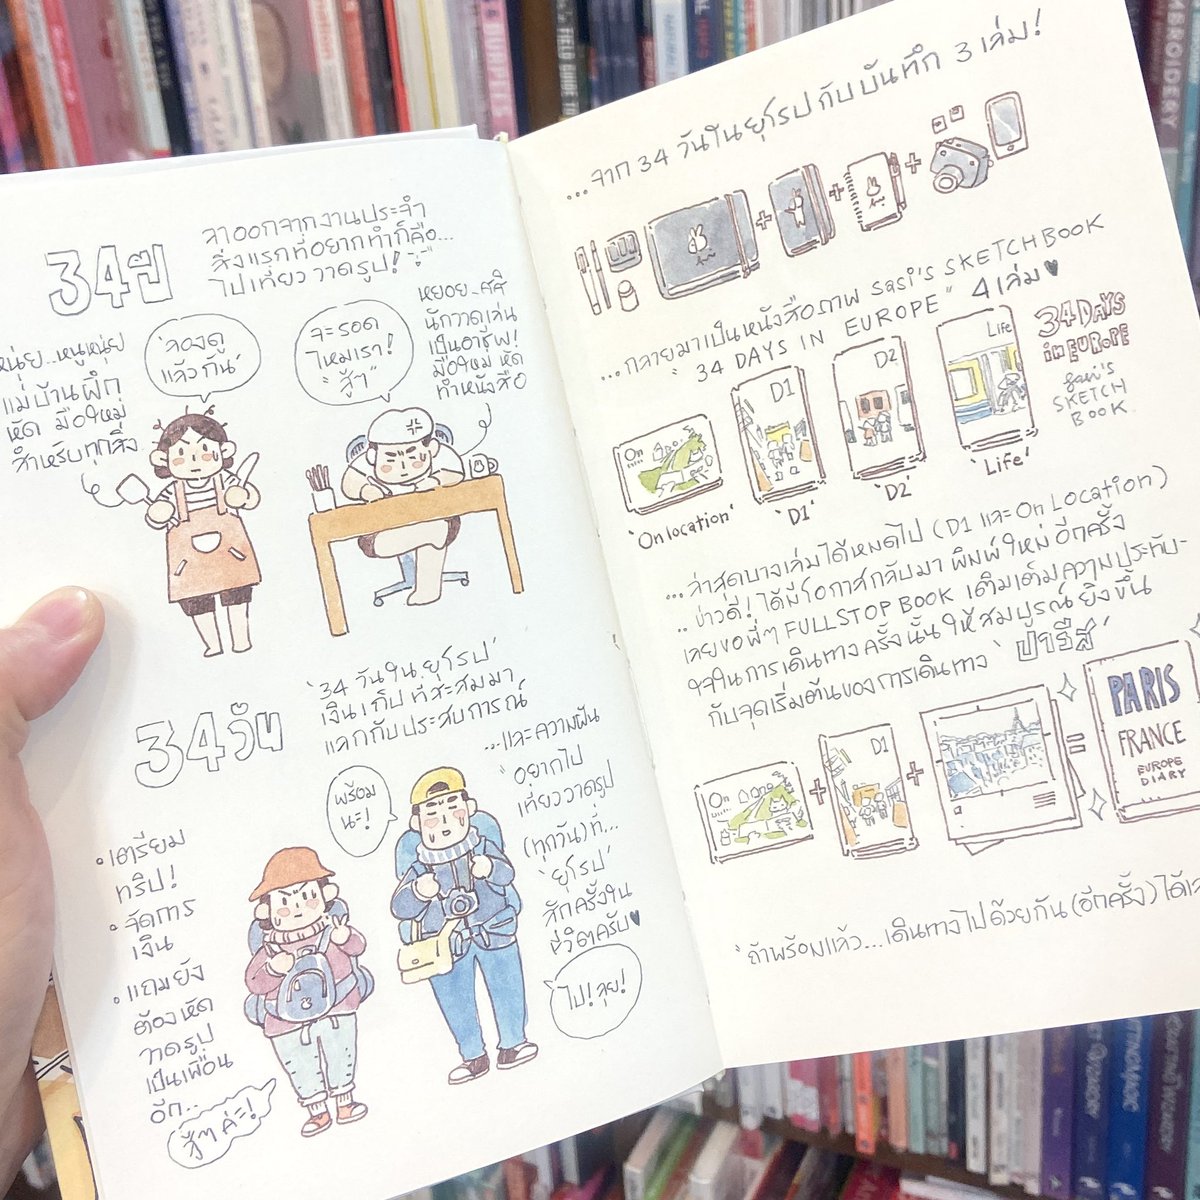 34ปี
ลาออกจากงานประจำ
สิ่งแรกที่อยากทำก็คือ...
ไปเที่ยววาดรูป!
หนุ่ย..หนูหนุ่ย
แม่บ้านฝึก
หัด มือใหม่
สำหรับทุกสิ่ง
'ลองดู
แล้วกัน'
จะรอด
ไหมเรา!
"สู้ๆ"
หยอย-ศศิ
นักวาดเล่น
เป็นอาชีพ!
มือใหม่ หัด
ทำหนังสือ
34วัน
'34 วันใน ยุโรป'
เงินเก็บที่สะสมมา
แลกกับประสบการณ์
...และความฝัน
"อยากไป
เที่ยววาดรูป
(ทุกวัน)ที่...
'ยุโรป'
สักครั้งใน
ชีวิตครับ♥
พร้อม
นะ!
ไป! ลุย!
• เตรียม
ทริป!
• จัดการ
เงิน
• แถมยัง
ต้องหัด
วาดรูป
เป็นเพื่อน
อีก..
สู้ๆ ค่ะ!
...จาก 34 วันในยุโรป กับบันทึก 3 เล่ม!
...กลายมาเป็นหนังสือภาพ Sasi's SKETCH BOOK
"34 DAYS IN EUROPE" 4 เล่ม♥
On
D1
D2
Life
34 DAYS
in EUROPE
Sasi's
SKETCH
BOOK
'On location'
'D1'
'D2'
'Life'
...ล่าสุดบางเล่มได้หมดไป (D1 และ On Location)
..ข่าวดี! ได้มีโอกาสกลับมา พิมพ์ใหม่ อีกครั้ง
เลยขอพี่ๆ FULLSTOP BOOK เติมเต็มความประทับ-
ใจในการเดินทางครั้งนั้น ให้สมบูรณ์ ยิ่งขึ้น
กับจุดเริ่มต้นของการเดินทาง 'ปารีส'
On
D1
PARIS
FRANCE
EUROPE
DIARY
'ถ้าพร้อมแล้ว...เดินทางไปด้วยกัน(อีกครั้ง)ได้
BLUEPRINTS
FIELD GUIDE TO
EMBROIDERY